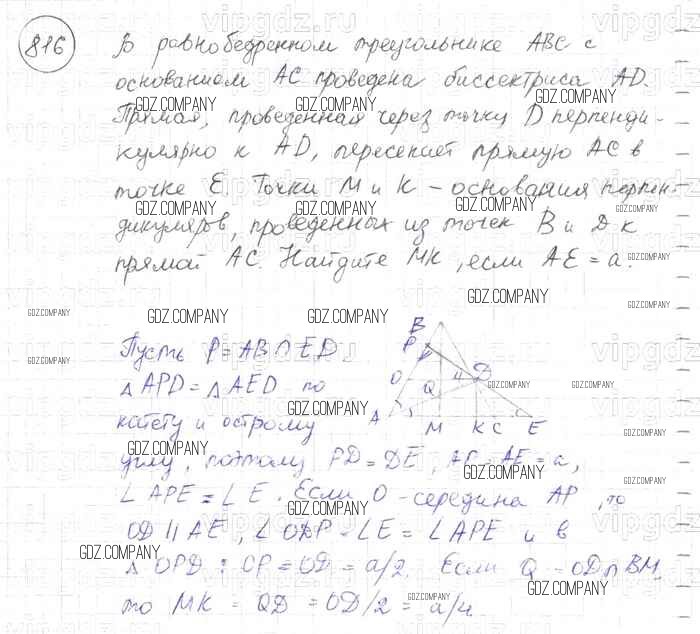 816
В равнобедренном треугольнике ABC с
основанием AC проведена биссектриса AD.
Прямая, проведенная через точку D перпенди-
кулярно к AD, пересекает прямую AC в
точке E. Точки M и K - основания перпен-
дикуляров, проведенных из точек B и D к
прямой AC. Найдите MK, если AE = a.
Пусть P = AB ∩ ED.
△ APD = △ AED по
катету и острому
углу, поэтому PD = DE, AP = AE = a,
∠ APE = ∠ E. Если O - середина AP, то
OD || AE, ∠ ODP = ∠ E = ∠ APE и в
△ OPD : OP = OD = a/2. Если Q = OD ∩ BM,
то MK = QD = OD/2 = a/4.
B
P
O
Q
4
D
A
M
K
C
E
GDZ.COMPANY
vipgdz.ru